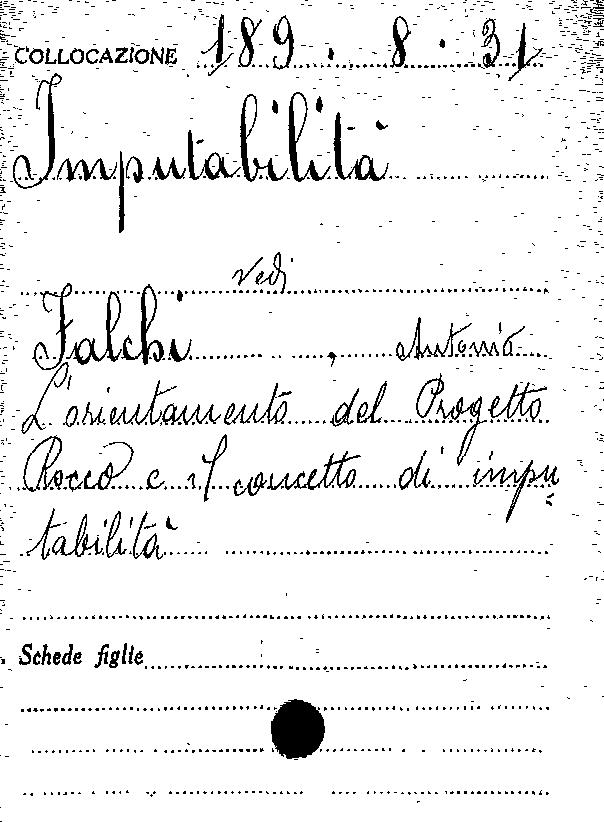 COLLOCAZIONE 189 . 8 . 31
Imputabilità
vedi
Falchi , Antonio
L'orientamento del Progetto
Rocco e il concetto di impu
tabilità
Schede figlie